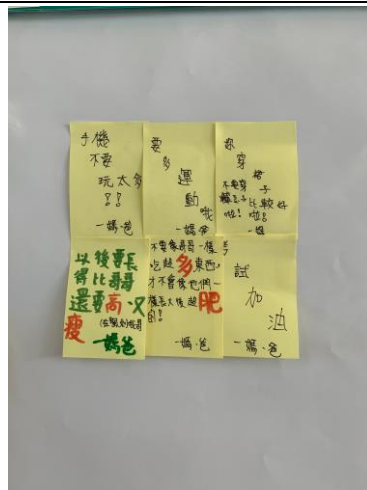 手機
不要
玩太多
!!
—媽爸
要
多
運
動
哦
—媽爸
穿裙
子
不要穿
褲子
比較好
啦!
啦!
—媽
以後要長
得比哥哥
還要高又
瘦
—媽爸
不要像哥哥一樣
吃超多東西,
才不會像他們一
樣長大後超肥
的!
—媽.爸
考
試
加
油
—媽.爸